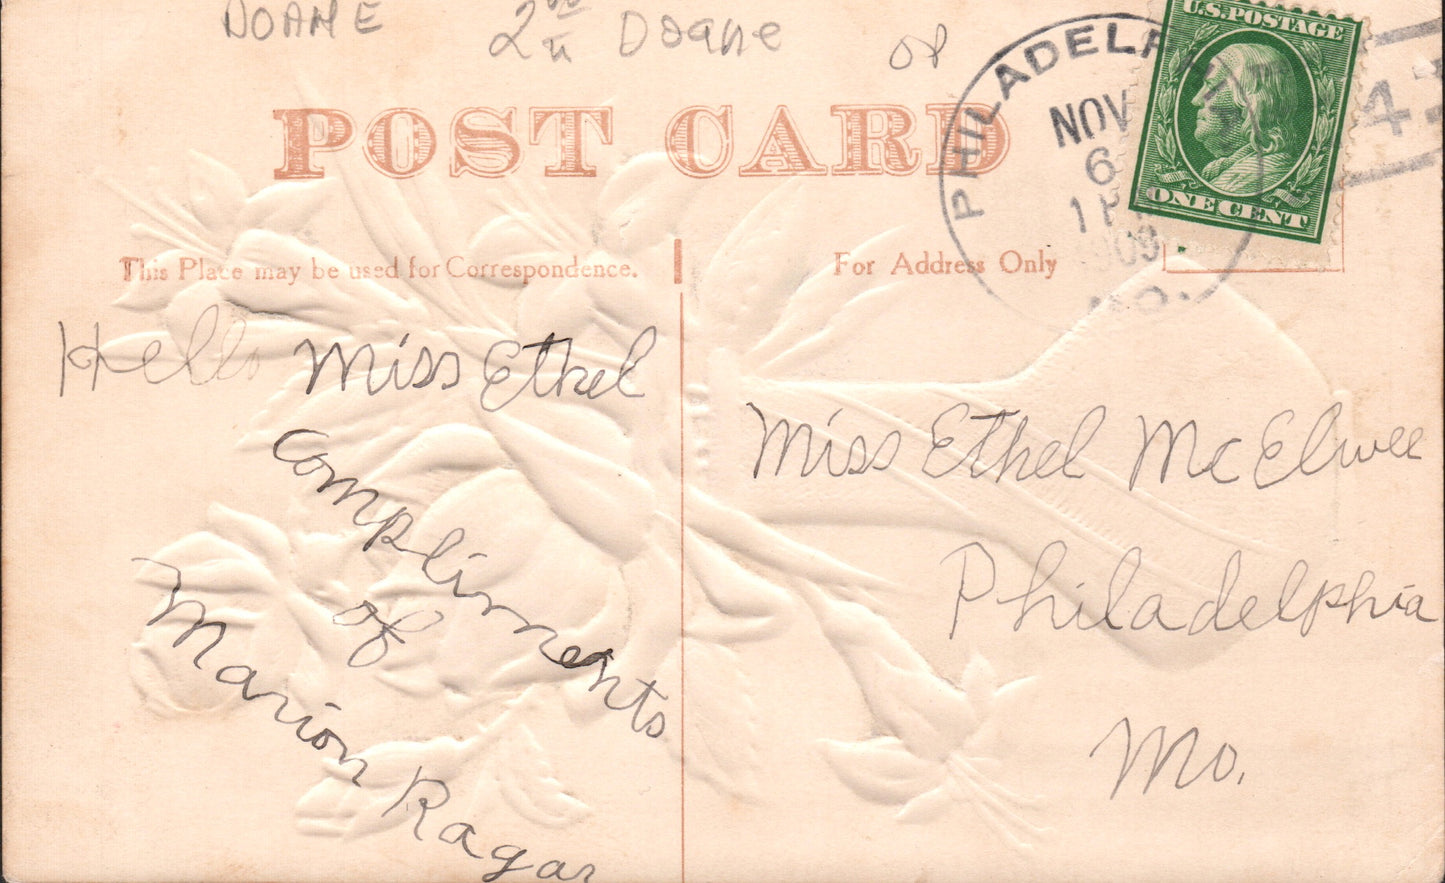 DOANE 2nd Doane OP
POST CARD
U.S. POSTAGE
ONE CENT
PHILADELPHIA
NOV
6
1 P
1909
MO.
4
This Place may be used for Correspondence.
For Address Only
Hello Miss Ethel
Compliments
of
Marion Ragar
Miss Ethel McElwee
Philadelphia
Mo.